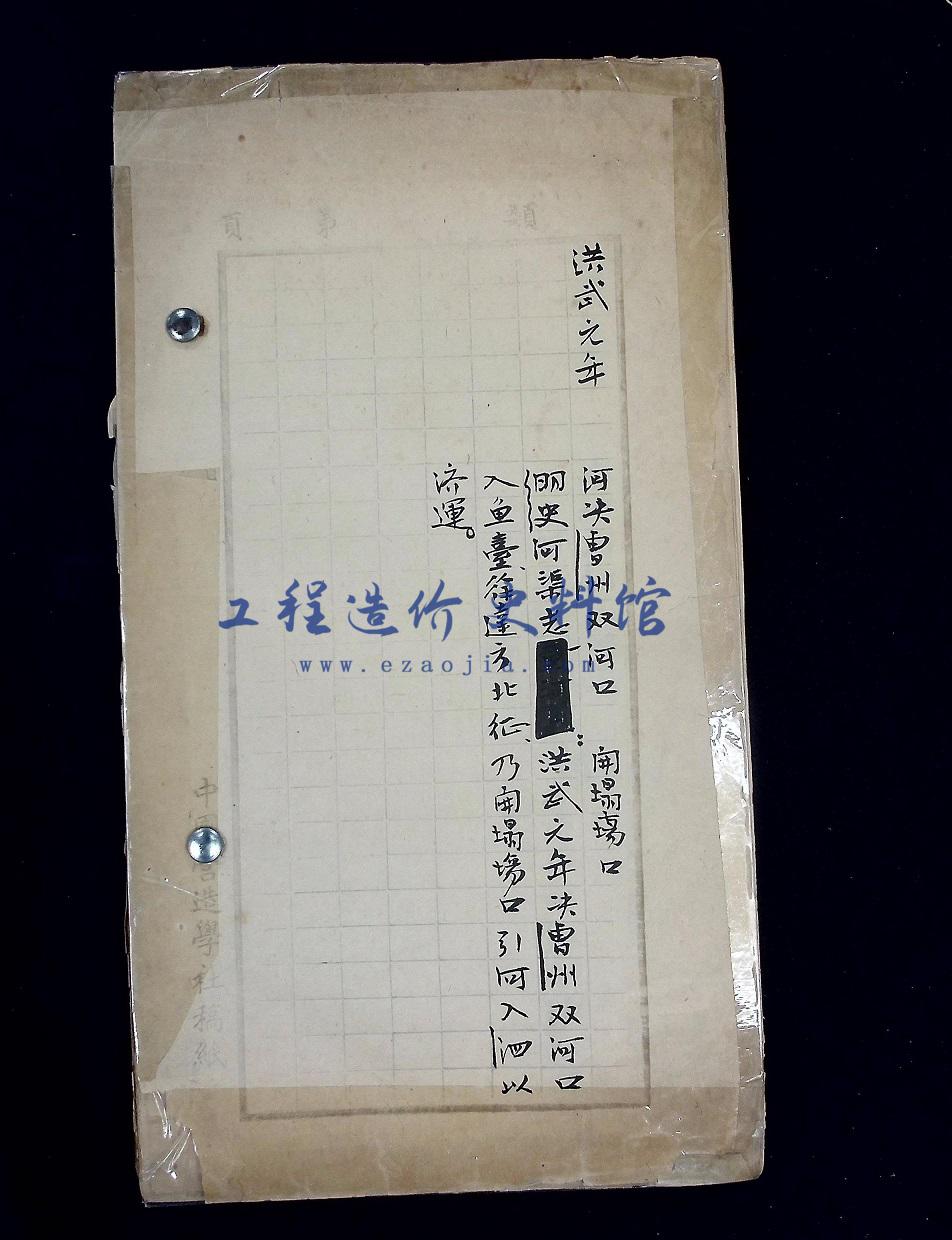 類 第 頁
洪武元年
河决曹州双河口 開塌塲口
明史河渠志:洪武元年决曹州双河口
入鱼臺、徐達方北征、乃開塌塲口引河入泗以
济運。
中國營造學社稿紙
工程造价史料馆
www.ezaojia.com